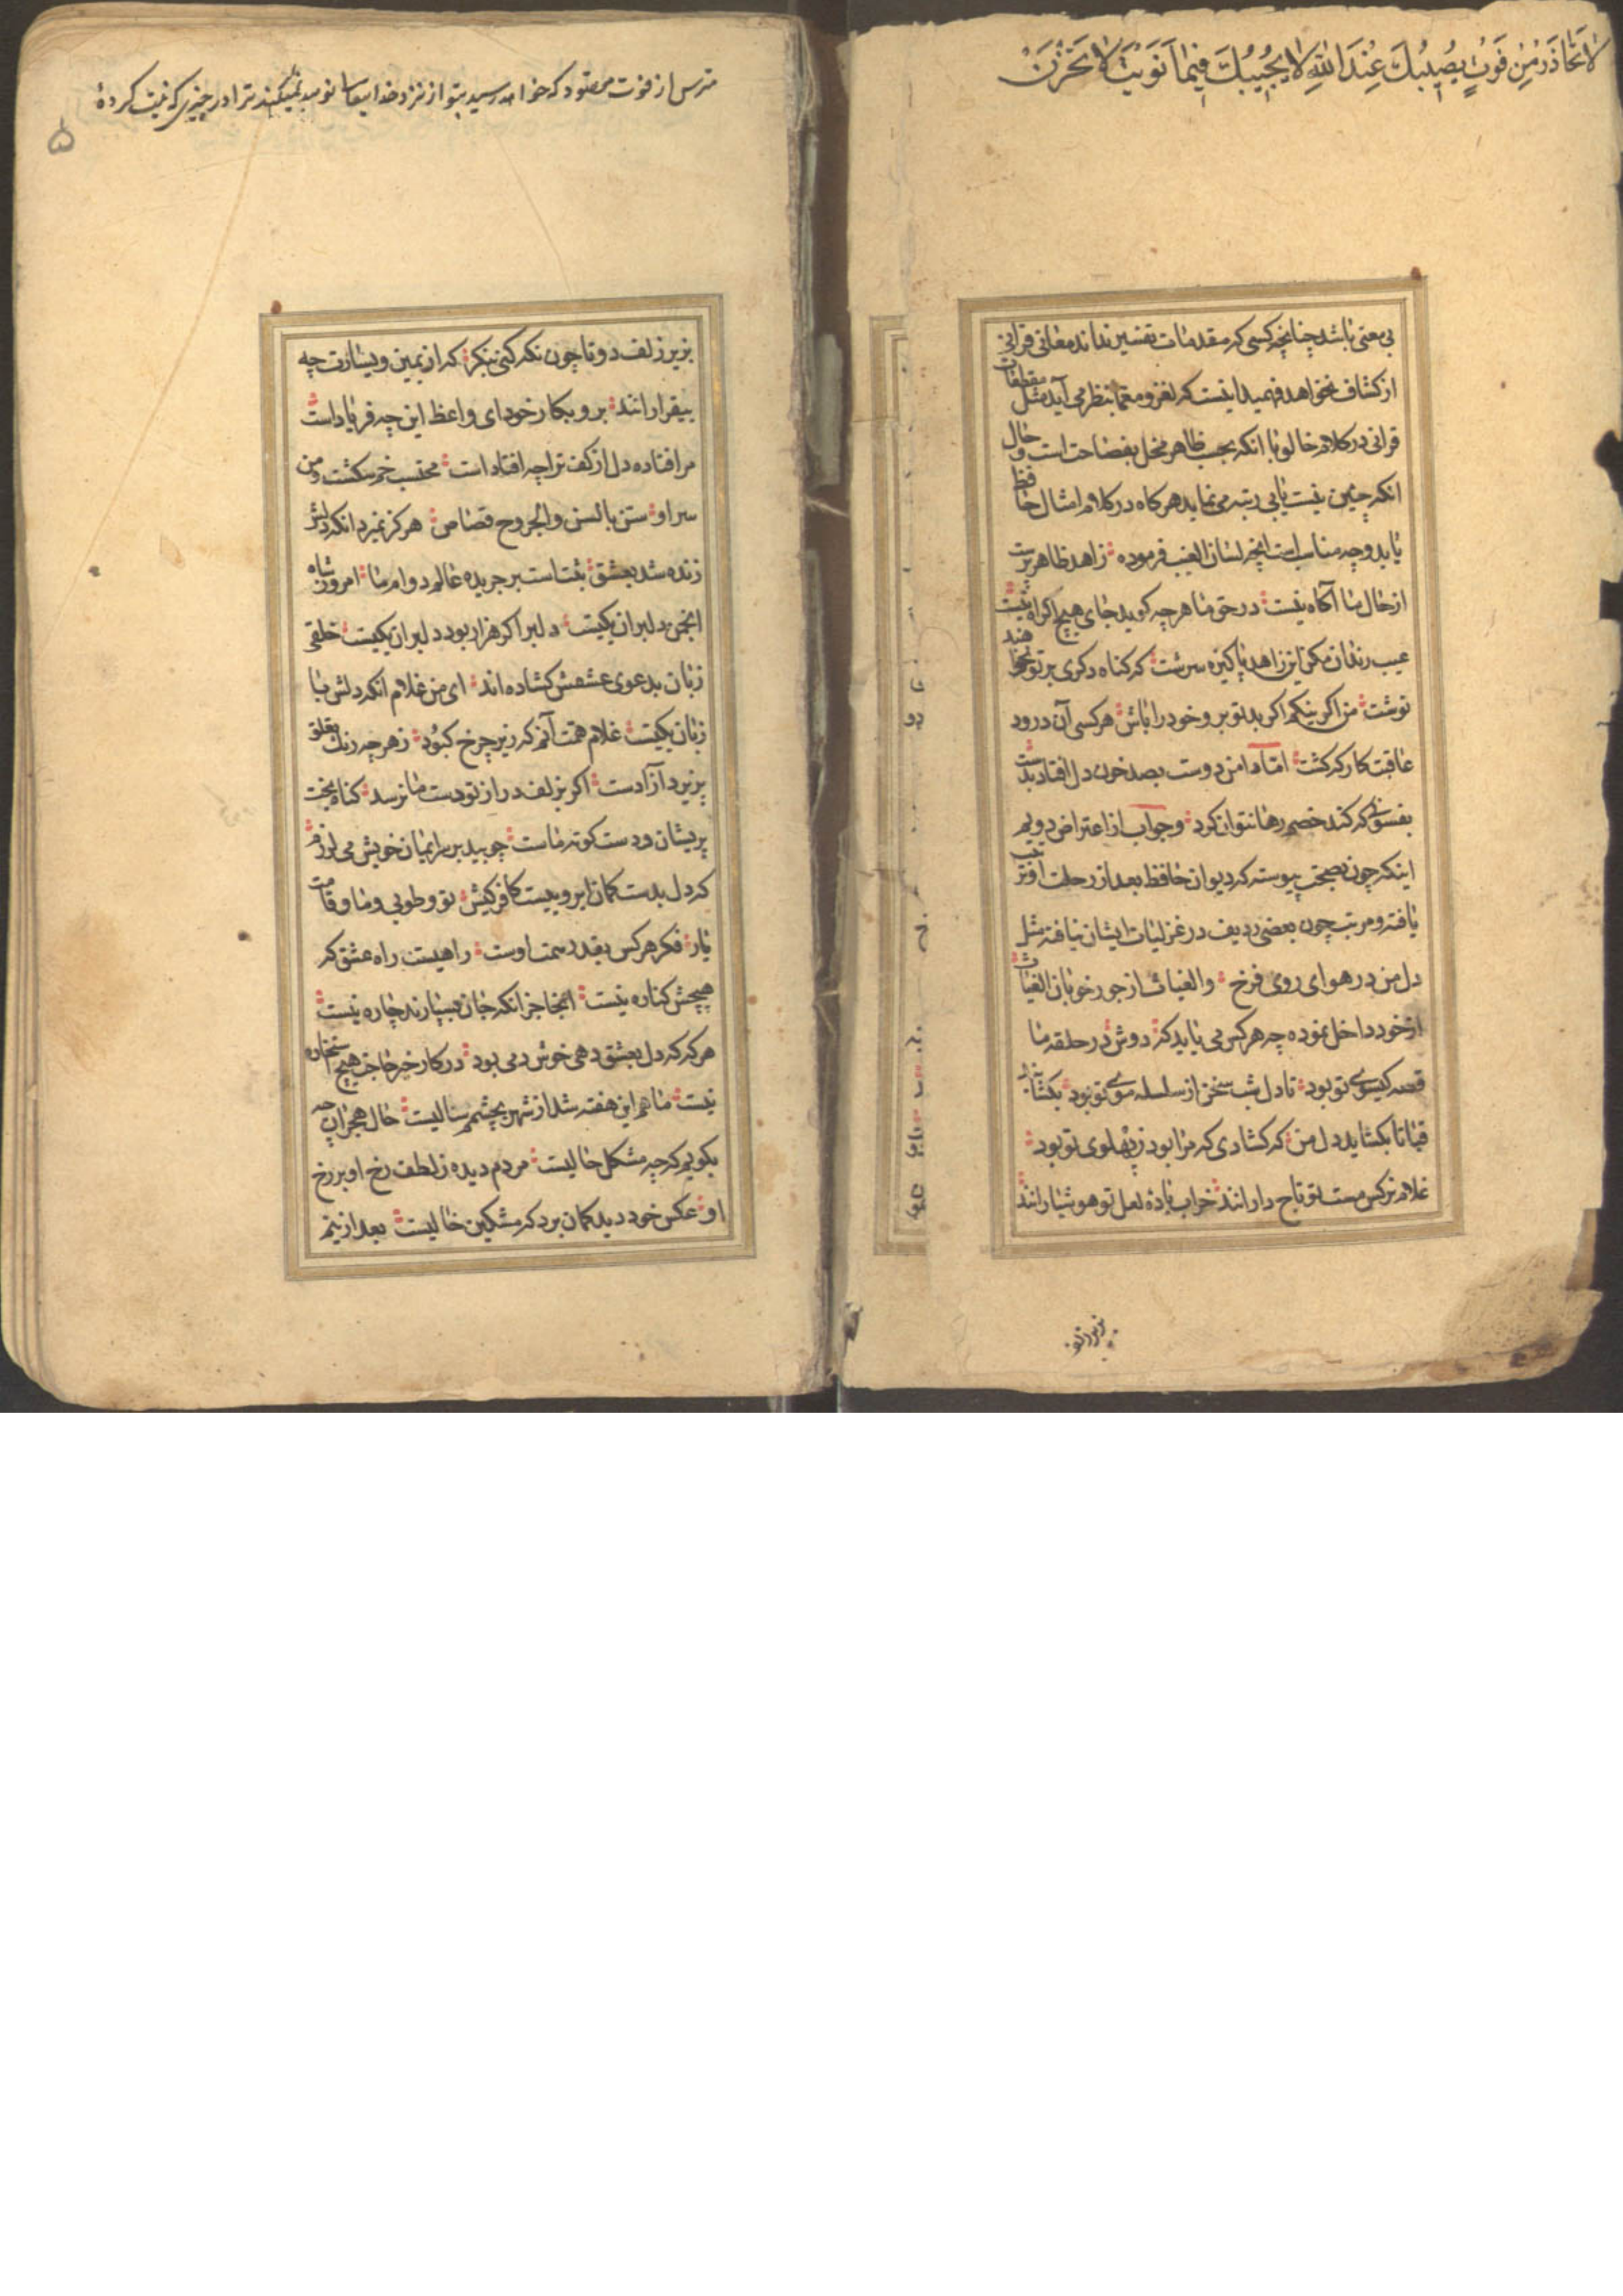 لا تحاذر من فوت یصیبک عند الله لا یخیبک فیما نویت لا تحزن
بی معنی باشد چنانچه کسی که مقدمات تفسیر نداند معانی قرانی
از کشاف نخواهد فهمید اینست که لغز و معما بنظر می آید مثل مقطعات
قرانی در کلام خالو با انکه بحسب ظاهر مخل بفصاحت است و حال
انکه چنین نیست پابی رتبه می نماید هرکاه در کلام امثال حافظ
یابد وچه مناسب است انچه لسان الغیب فرموده زاهد ظاهر پرست
از حال ما آکاه نیست در حق ما هرچه کوید جای هیچ اکراه نیست
عیب رندان مکن ای زاهد پاکیزه سرشت که کناه دکری بر تو نخواهند
نوشت من اکر نیکم اکر بد تو برو خود را باش هر کسی آن درود
عاقبت کار که کشت اما دامن دوست بصد خون دل افتاد بدست
بفسوسی که کند خصم رها نتوان کرد و جواب از اعتراض دویم
اینکه چون بصحت پیوسته که دیوان حافظ بعد از رحلت او ترتیب
یافته و مرتب چون بعضی ردیف در غزلیات ایشان نیافته مثل
دل من در هوای روی فرخ و الغیاث از جور خوبان الغیاث
از خود داخل نموده چه هر کس می یابد که دوش در حلقه ما
قصه کیسوی تو بود تا دل شب سخن از سلسله موی تو بود بکشا بند
قبا تا بکشاید دل من که کشادی که مرا بود ز پهلوی تو بود
غلام نرکس مست تو تاج دارانند خراب باده لعل تو هوشیارانند
بزیر زلف
مترس از فوت مقصود که خواهد رسید بتو از نزد خدایتعالی نومید نمیکند ترا در چیزی که نیت کردهٔ
۵
بزیر زلف دوتا چون نکه کنی بنکر که از یمین و یسارت چه
بیقرارانند برو بکار خود ای واعظ این چه فریاد است
مرا افتاده دل از کف ترا چه افتاد است محتسب خم شکست و من
سر او سن بالسن والجروح قصاص هرکز نمیرد انکه دلش
زنده شد بعشق ثبت است بر جریده عالم دوام ما امروز شاه
انجمن دلبران یکیست دلبر اکر هزار بود دلبر ان یکیست خلقی
زبان بدعوی عشقش کشاده اند ای من غلام انکه دلش با
زبان یکیست غلام همت آنم که زیر چرخ کبود ز هرچه رنک تعلق
پزیرد آزادست اکر بزلف دراز تو دست ما نرسد کناه بخت
پریشان و دست کوته ماست چو بید بر سر ایمان خویش می لرزم
که دل بدست کمان ابرو ییست کافر کیش تو و طوبی و ما و قامت
یار فکر هر کس بقدر همت اوست راهیست راه عشق که
هیچش کناره نیست انجا جز انکه جان بسپارند چاره نیست
هرکه که دل بعشق دهی خوش دمی بود در کار خیر حاجت هیچ استخاره
نیست ماهم این هفته شد از شهر بچشمم سالیست حال هجران چه
بکویم که چه مشکل حالیست مردم دیده ز لطف رخ او بر رخ
او عکس خود دید کمان برد که مشکین خالیست بعد ازینم